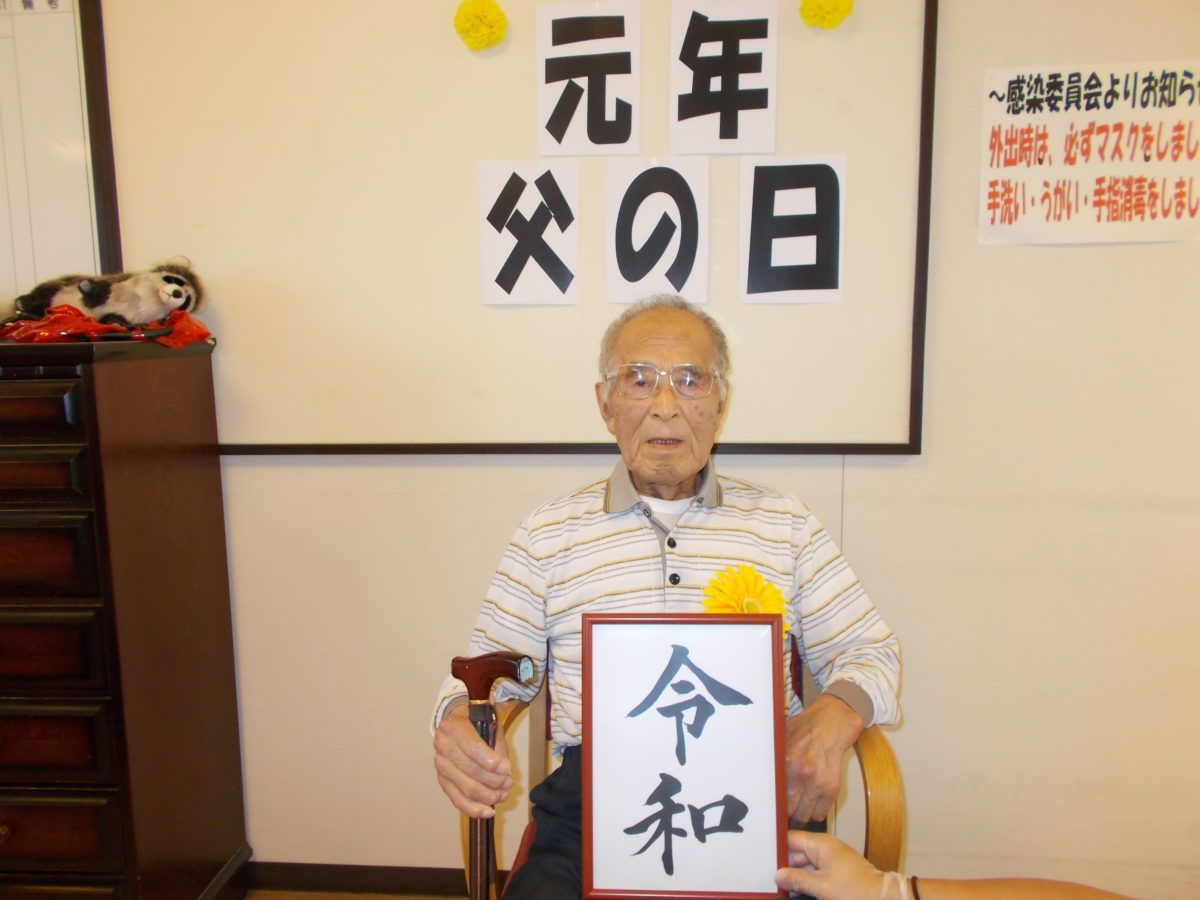 備考
元年
父の日
～感染委員会よりお知ら
外出時は、必ずマスクをしまし
手洗い・うがい・手指消毒をしまし
令和